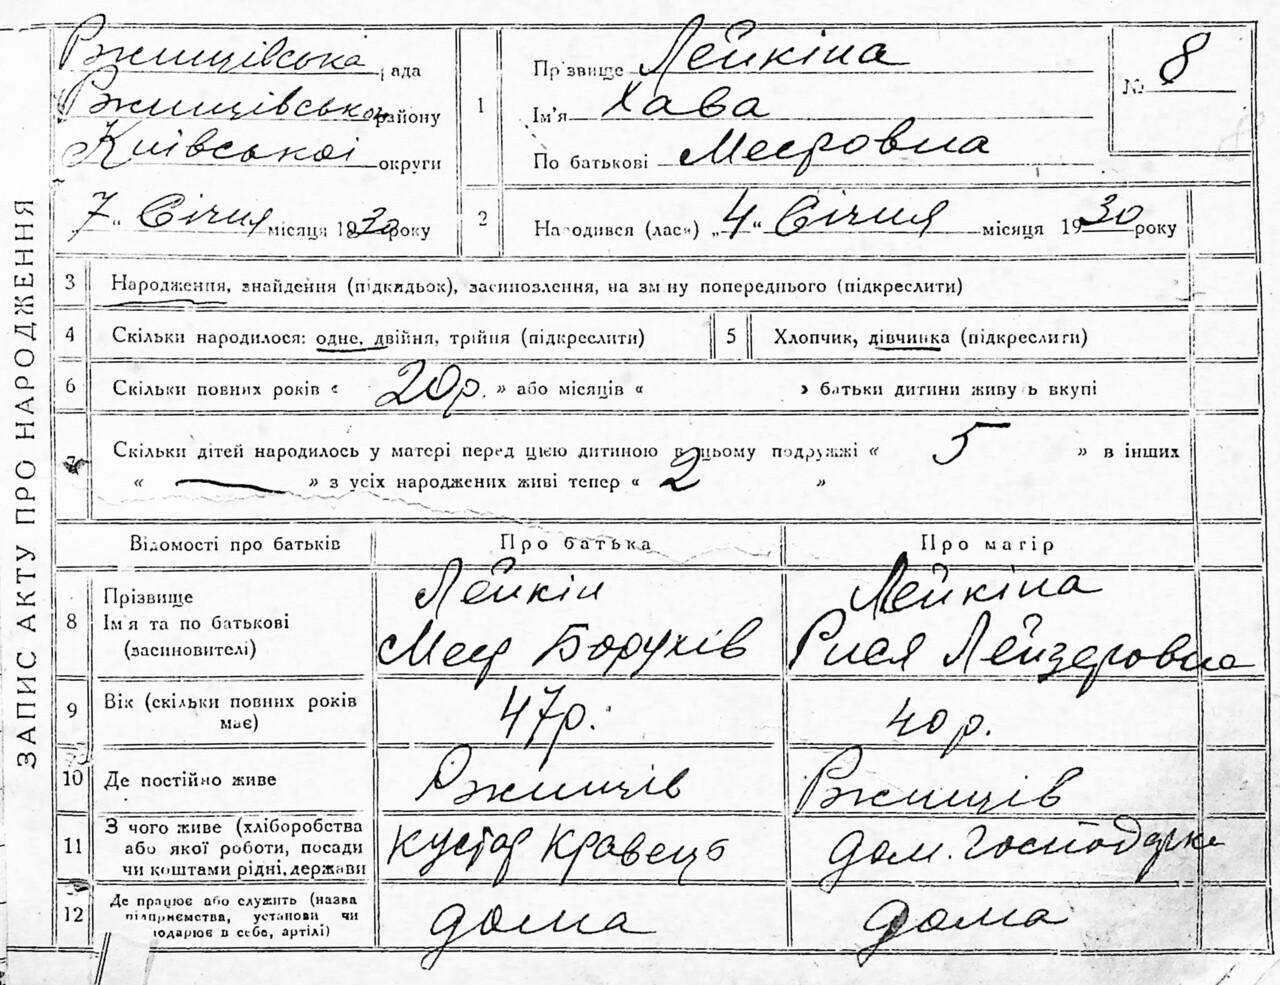 ЗАПИС АКТУ ПРО НАРОДЖЕННЯ
Ржищівська рада
Ржищівського району
Київської округи
7 " Січня місяця 1930 року
1
Прізвище Лейкіна
Ім'я Хава
По батькові Месровна
№ 8
2
Народився (лась) „ 4 “ Січня місяця 1930 року
3 Народження, знайдення (підкидьок), засиновлення, на зміну попереднього (підкреслити)
4 Скільки народилося: одне, двійня, трійня (підкреслити)
5 Хлопчик, дівчинка (підкреслити)
6 Скільки повних років « 20 р. » або місяців « » батьки дитини живуть вкупі
7 Скільки дітей народилось у матері перед цією дитиною в цьому подружжі « 5 » в інших
« — » з усіх народжених живі тепер « 2 »
Відомості про батьків Про батька Про матір
8 Прізвище
Ім'я та по батькові
(засиновителі)
Лейкін
Меєр Борухів
Лейкіна
Рися Лейзеровна
9 Вік (скільки повних років
має)
47 р.
40 р.
10 Де постійно живе Ржищів Ржищів
11 З чого живе (хліборобства
або якої роботи, посади
чи коштами рідні, держави
кустар кравець
дом. господарка
12 Де працює або служить (назва
підприємства, установи чи
господарює в себе, артілі)
дома
дома